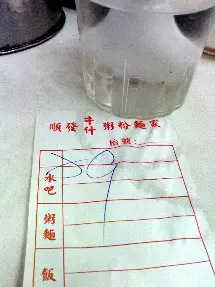 順發牛什粥粉麵家
枱號：
水吧
粥麵
飯